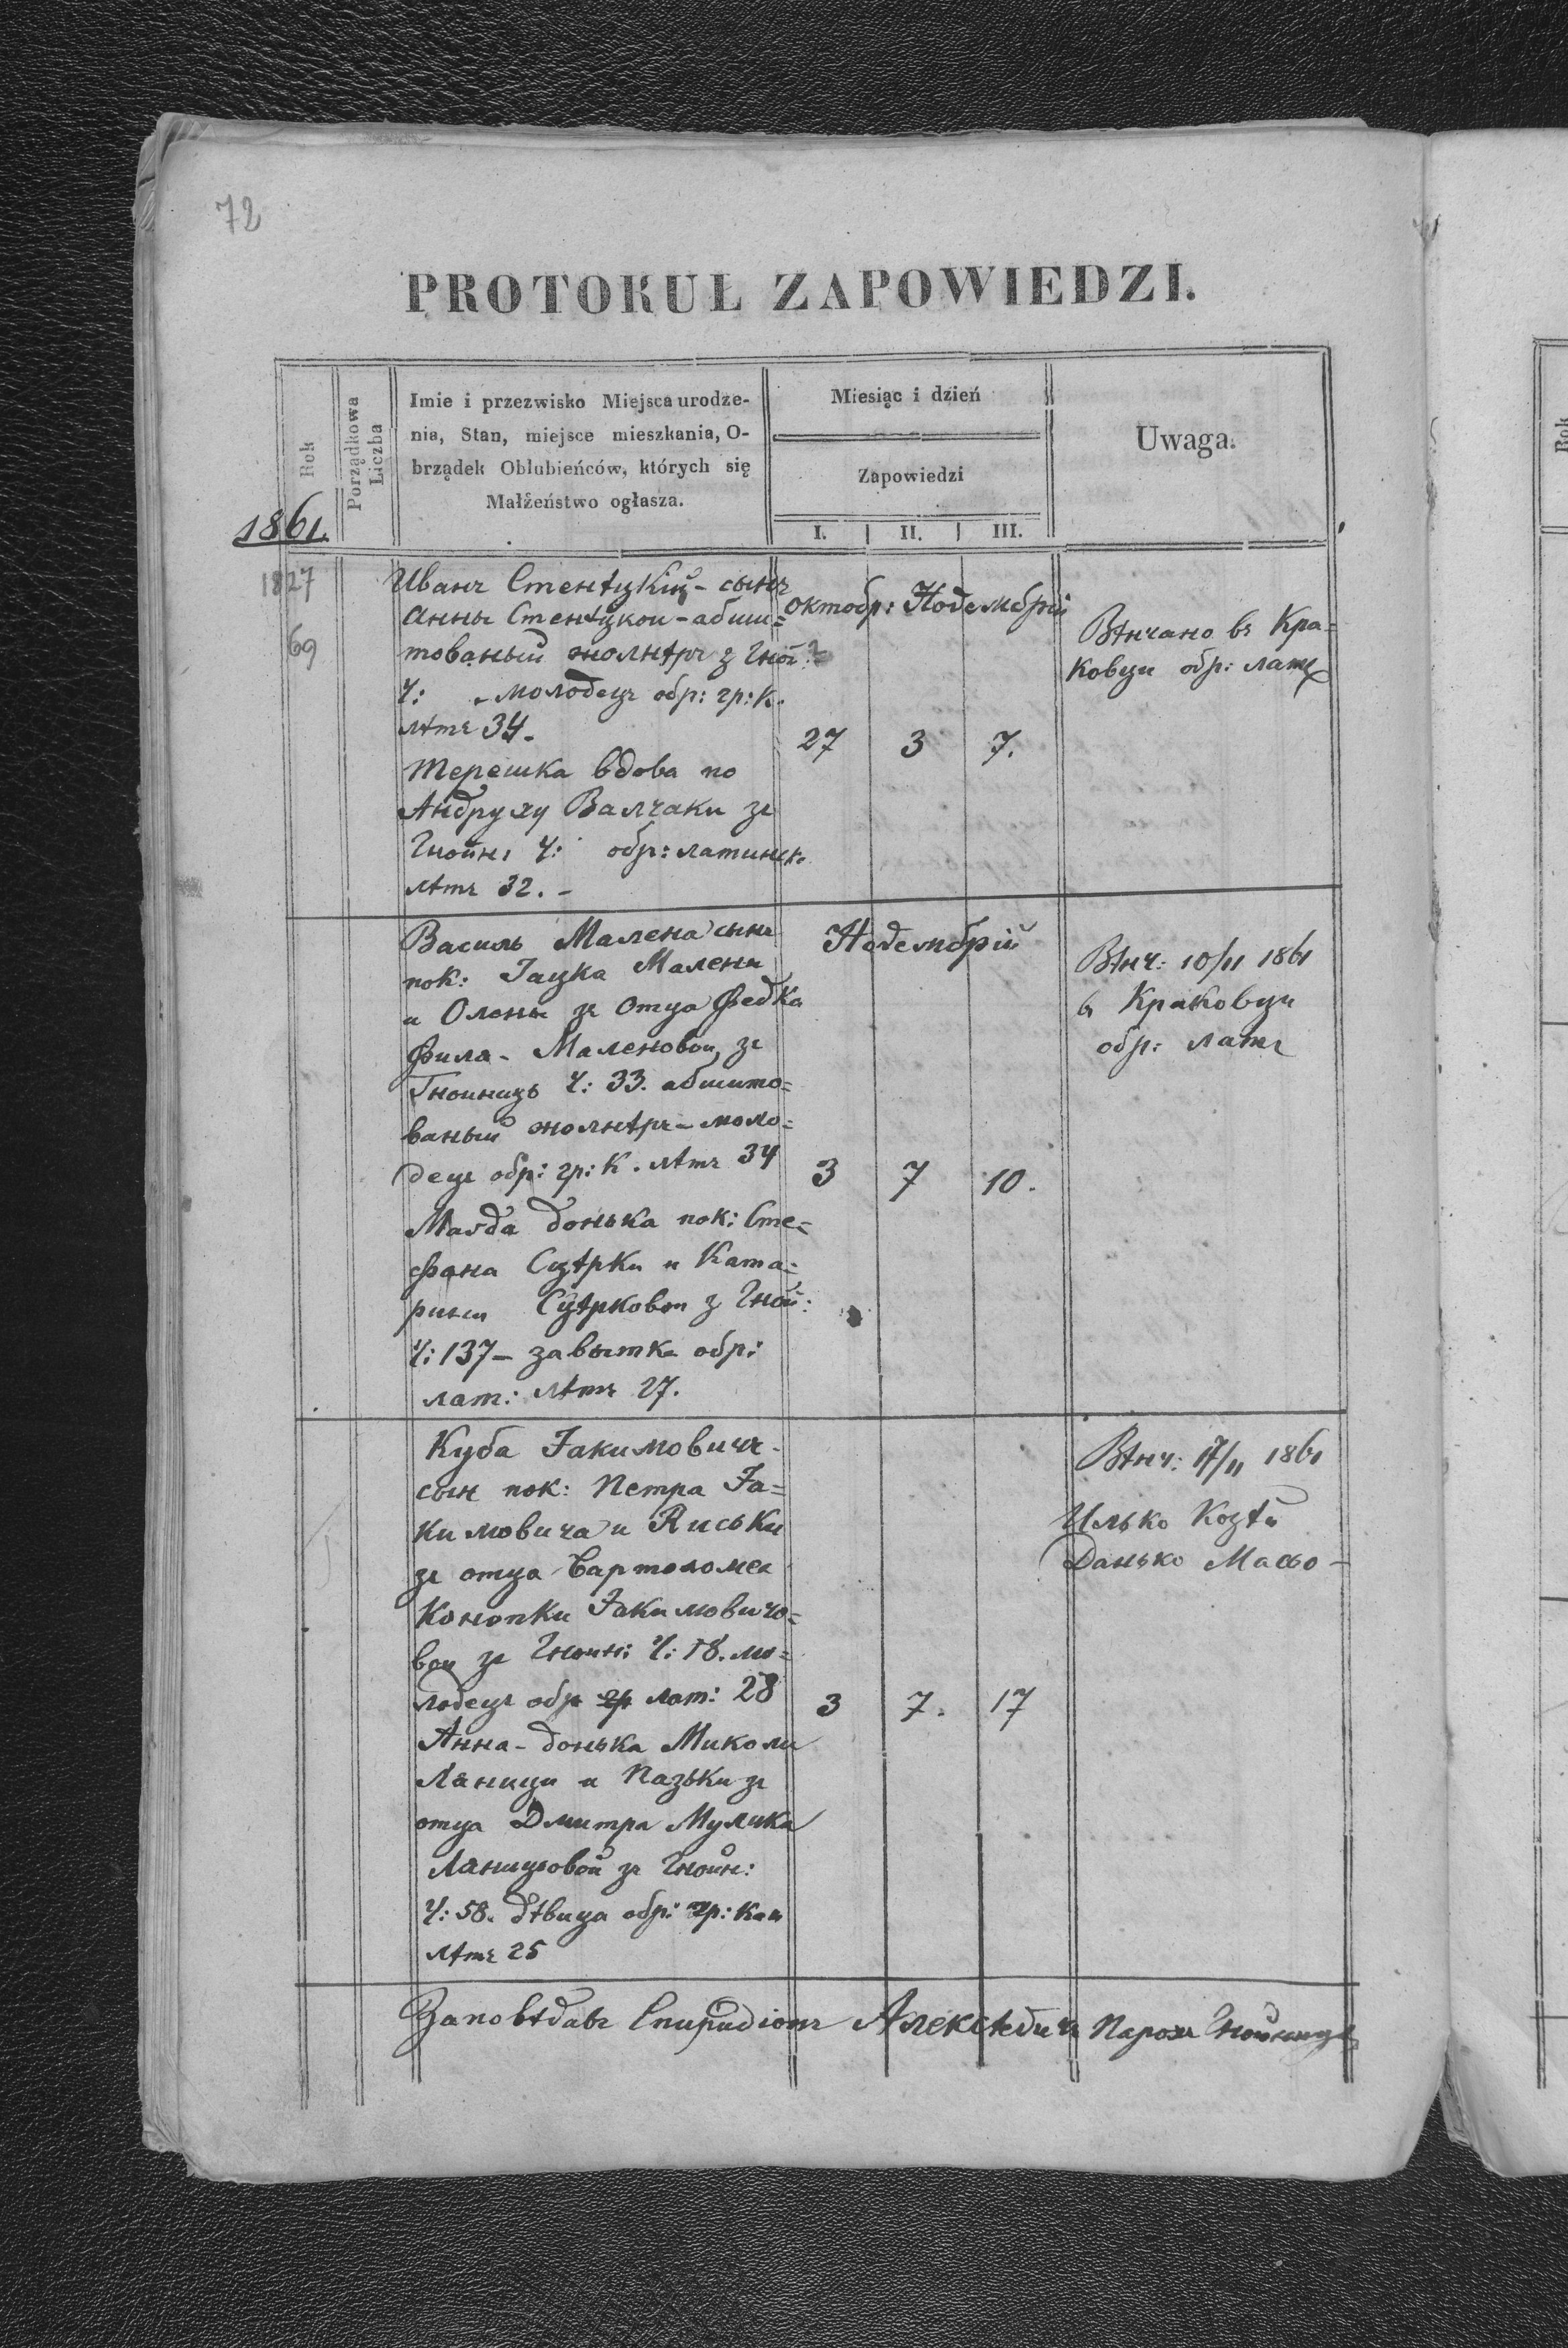 72
PROTOKUŁ ZAPOWIEDZI.
Rok
Porządkowa Liczba
Imie i przezwisko Miejsca urodze-
nia, Stan, miejsce mieszkania, O-
brządek Oblubieńców, których się
Małżeństwo ogłasza.
Miesiąc i dzień
Zapowiedzi
I. II. III.
Uwaga.
1861.
1827
69
Иванъ Стенѣцкій - сынъ
Анны Стенѣцкои - абши=
тованый жолнѣръ з Гной:
Ч: - молодецъ обр: гр: К.
лѣтъ 34.
Терешка вдова по
Андруху Валчаки зъ
Гнойн: Ч: обр: латинск.
лѣтъ 32. -
Октобр: Новемврій
27 3 7.
Вѣнчано въ Кра=
ковци обр: лат
Василь Малена сынъ
пок: Іацка Малены
и Олены зъ Отца Федка
Фила - Маленовои, зъ
Гноиницъ Ч: 33. абшито=
ваный жолнѣръ - моло=
децъ обр: гр: К. лѣтъ 34
Магда донька пок: Сте=
фана Сцѣрки и Ката=
рины Сцѣрковои з Гной:
Ч: 137 - завытка обр:
лат: лѣтъ 27.
Новемврій
3 7 10.
Вѣнч: 10/11 1861
в Краковци
обр: лат
Куба Іакимовичъ -
сынъ пок: Петра Іа=
кимовича и Яиськи
зъ отца Бартоломеа
Конопки Іакимовичо=
вои зъ Гноин: Ч: 18. мо=
лодецъ обр гр лат: 28
Анна - донька Миколи
Ланици и Пазьки зъ
отца Дмитра Мулика
Ланицовои зъ Гноин:
Ч: 58. дѣвица обр: гр: Каѳ
лѣтъ 25
3 7. 17
Вѣнч: 17/11 1861
Илько Козѣй
Данько
Заповѣдавъ Спиридіонъ Алексѣевичъ Парохъ Гнойницъ